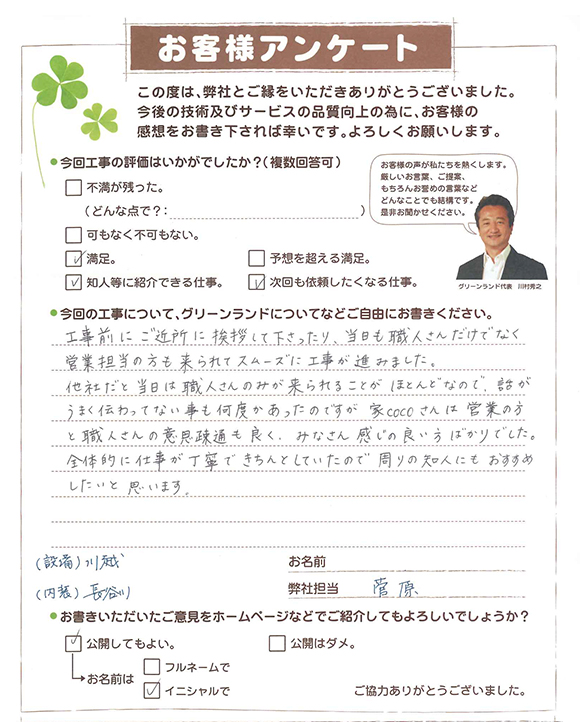 お客様アンケート
この度は、弊社とご縁をいただきありがとうございました。
今後の技術及びサービスの品質向上の為に、お客様の
感想をお書き下されば幸いです。よろしくお願いします。
今回工事の評価はいかがでしたか?(複数回答可)
不満が残った。
(どんな点で?: )
可もなく不可もない。
満足。
予想を超える満足。
知人等に紹介できる仕事。
次回も依頼したくなる仕事。
お客様の声が私たちを熱くします。
厳しいお言葉、ご提案、
もちろんお誉めの言葉など
どんなことでも結構です。
是非お聞かせください。
グリーンランド代表 川村秀之
今回の工事について、グリーンランドについてなどご自由にお書きください。
工事前にご近所に挨拶して下さったり、当日も職人さんだけでなく
営業担当の方も来られてスムーズに工事が進みました。
他社だと当日は職人さんのみが来られることがほとんどなので、話が
うまく伝わってない事も何度かあったのですが 家cocoさんは営業の方
と職人さんの意見疎通も良く、みなさん感じの良い方ばかりでした。
全体的に仕事が丁寧できちんとしていたので 周りの知人にもおすすめ
したいと思います。
(設備)川越
(内装)長谷川
お名前
弊社担当 菅原
お書きいただいたご意見をホームページなどでご紹介してもよろしいでしょうか?
公開してもよい。
公開はダメ。
お名前は
フルネームで
イニシャルで
ご協力ありがとうございました。